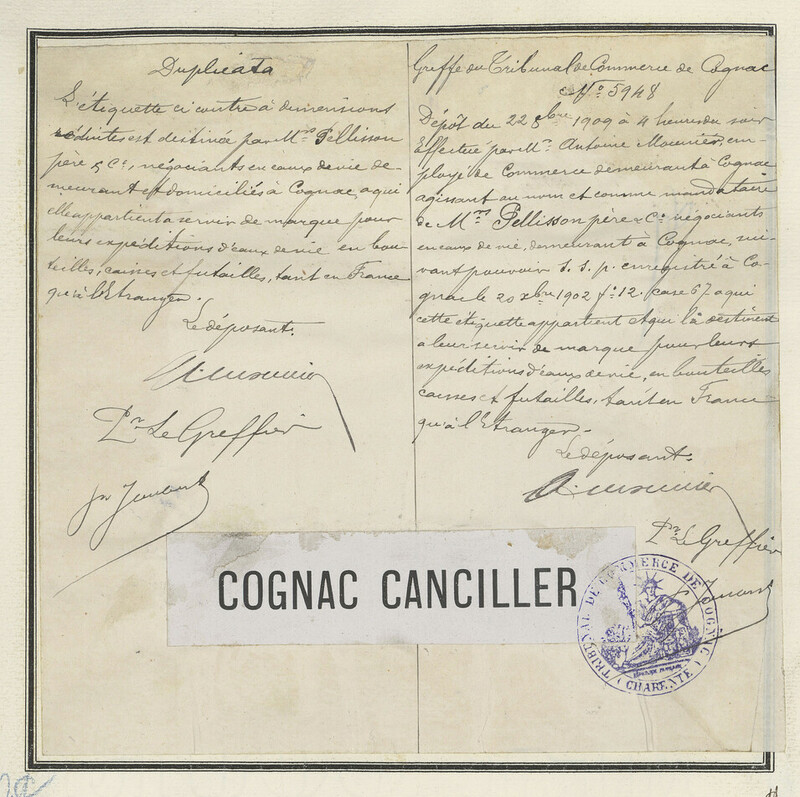 Duplicata
L'étiquette ci contre à dimensions
réduites est destinée par Mrs Pellisson
père & Cie, négociants en eaux de vie de-
meurant et domiciliés à Cognac, a qui
elle appartient a servir de marque pour
leurs expéditions d'eaux de vie en bou-
teilles, caisses et futailles, tant en France
qu'à l'Etranger.
Le déposant.
A. Mounier
Pr Le Greffier
Greffe du Tribunal de Commerce de Cognac
No 5948
Dépôt du 22 8bre 1909 à 4 heures du soir
Effectué par Mr Antoine Mounier, em-
ployé de Commerce demeurant à Cognac
agissant au nom et comme mandataire
de Mrs Pellisson père & Cie négociants
en eaux de vie, demeurant à Cognac, sui-
vant pouvoir s. s. p. enregistré à Co-
gnac le 20 xbre 1902 fo 12. case 67. a qui
cette étiquette appartient et qui la destinent
à leur servir de marque pour leurs
expéditions d'eaux de vie, en bouteilles
caisses et futailles, tant en France
qu'à l'Etranger.
Le déposant.
A. Mounier
Pr Le Greffier
COGNAC CANCILLER
TRIBUNAL DE COMMERCE DE COGNAC
(CHARENTE)